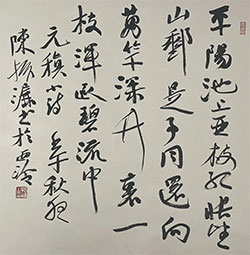 平陽池上亞枝紅悵望
山郵是事同還向
萬竿深竹裏一
枝渾臥碧流中
元稹小詩 秋
陳振濂書於西泠